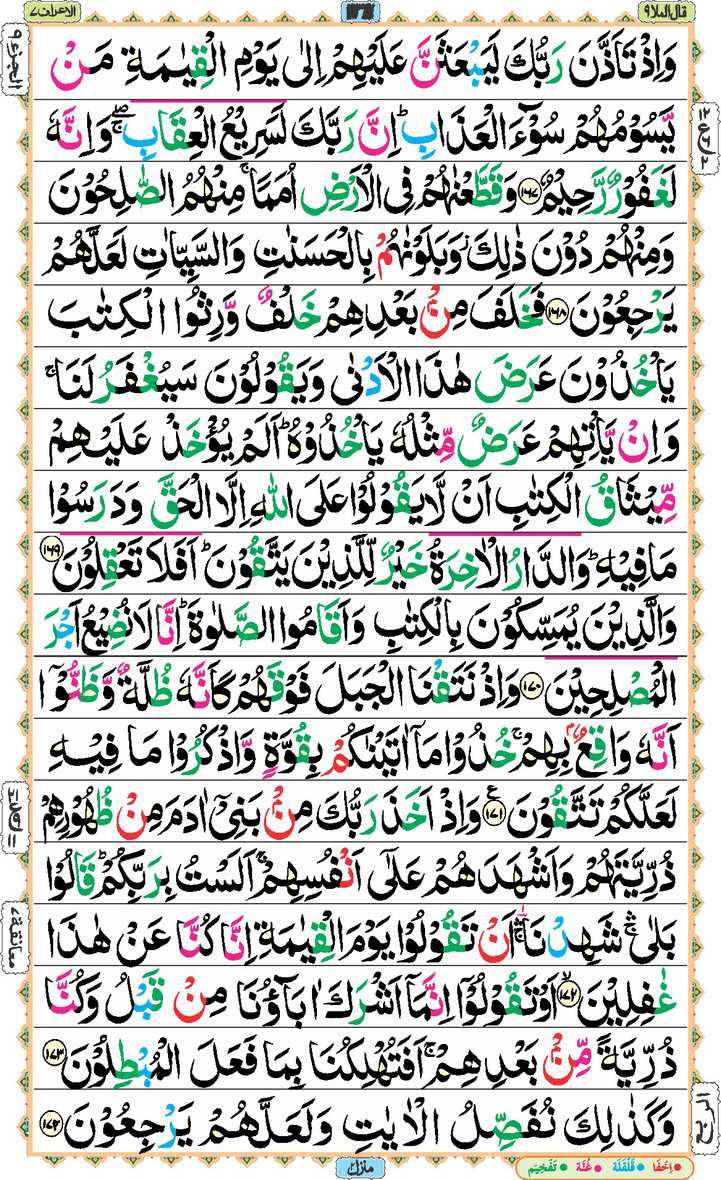 قال الملا ٩
١٦٦
الاعراف ٧
وَاِذْ تَاَذَّنَ رَبُّكَ لَيَبْعَثَنَّ عَلَيْهِمْ اِلٰى يَوْمِ الْقِيٰمَةِ مَنْ
يَّسُوْمُهُمْ سُوْٓءَ الْعَذَابِ ؕ اِنَّ رَبَّكَ لَسَرِيْعُ الْعِقَابِ ۖۚ وَاِنَّهٗ
لَغَفُوْرٌ رَّحِيْمٌ ﴿۱۶۷﴾ وَقَطَّعْنٰهُمْ فِى الْاَرْضِ اُمَمًا ۚ مِنْهُمُ الصّٰلِحُوْنَ
وَمِنْهُمْ دُوْنَ ذٰلِكَ ۫ وَبَلَوْنٰهُمْ بِالْحَسَنٰتِ وَالسَّيِّاٰتِ لَعَلَّهُمْ
يَرْجِعُوْنَ ﴿۱۶۸﴾ فَخَلَفَ مِنْۢ بَعْدِهِمْ خَلْفٌ وَّرِثُوا الْكِتٰبَ
يَاْخُذُوْنَ عَرَضَ هٰذَا الْاَدْنٰى وَيَقُوْلُوْنَ سَيُغْفَرُ لَنَا ۚ
وَاِنْ يَّاْتِهِمْ عَرَضٌ مِّثْلُهٗ يَاْخُذُوْهُ ؕ اَلَمْ يُؤْخَذْ عَلَيْهِمْ
مِّيْثَاقُ الْكِتٰبِ اَنْ لَّا يَقُوْلُوْا عَلَى اللّٰهِ اِلَّا الْحَقَّ وَدَرَسُوْا
مَا فِيْهِ ؕ وَالدَّارُ الْاٰخِرَةُ خَيْرٌ لِّلَّذِيْنَ يَتَّقُوْنَ ؕ اَفَلَا تَعْقِلُوْنَ ﴿۱۶۹﴾
وَالَّذِيْنَ يُمَسِّكُوْنَ بِالْكِتٰبِ وَاَقَامُوا الصَّلٰوةَ ؕ اِنَّا لَا نُضِيْعُ اَجْرَ
الْمُصْلِحِيْنَ ﴿۱۷۰﴾ وَاِذْ نَتَقْنَا الْجَبَلَ فَوْقَهُمْ كَاَنَّهٗ ظُلَّةٌ وَّظَنُّوْۤا
اَنَّهٗ وَاقِعٌۢ بِهِمْ ۚ خُذُوْا مَاۤ اٰتَيْنٰكُمْ بِقُوَّةٍ وَّاذْكُرُوْا مَا فِيْهِ
لَعَلَّكُمْ تَتَّقُوْنَ ﴿۱۷۱﴾ ع وَاِذْ اَخَذَ رَبُّكَ مِنْۢ بَنِىْۤ اٰدَمَ مِنْ ظُهُوْرِهِمْ
ذُرِّيَّتَهُمْ وَاَشْهَدَهُمْ عَلٰٓى اَنْفُسِهِمْ ۚ اَلَسْتُ بِرَبِّكُمْ ؕ قَالُوْا
بَلٰى ۛۚ شَهِدْنَا ۛۚ اَنْ تَقُوْلُوْا يَوْمَ الْقِيٰمَةِ اِنَّا كُنَّا عَنْ هٰذَا
غٰفِلِيْنَ ﴿۱۷۲﴾ اَوْ تَقُوْلُوْۤا اِنَّمَاۤ اَشْرَكَ اٰبَآؤُنَا مِنْ قَبْلُ وَكُنَّا
ذُرِّيَّةً مِّنْۢ بَعْدِهِمْ ۚ اَفَتُهْلِكُنَا بِمَا فَعَلَ الْمُبْطِلُوْنَ ﴿۱۷۳﴾
وَكَذٰلِكَ نُفَصِّلُ الْاٰيٰتِ وَلَعَلَّهُمْ يَرْجِعُوْنَ ﴿۱۷۴﴾
معانقة ٧
الجزء ٩
منزل ٢
• اِخْفَا • قَلْقَلَة • غُنَّة • تَفْخِيْم